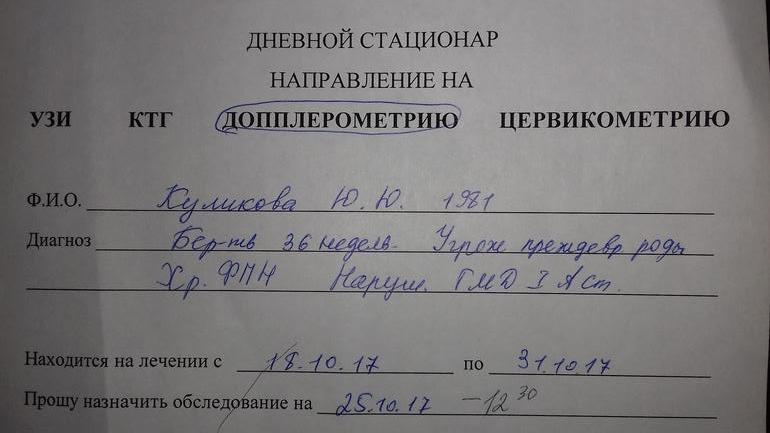 ДНЕВНОЙ СТАЦИОНАР
НАПРАВЛЕНИЕ НА
УЗИ КТГ ДОППЛЕРОМЕТРИЮ ЦЕРВИКОМЕТРИЮ
Ф.И.О. Куликова Ю. Ю. 1981
Диагноз Бер-ть 36 недель Угрож преждевр роды
Хр. ФПН Наруш. ГМД I А ст.
Находится на лечении с 18.10.17 по 31.10.17
Прошу назначить обследование на 25.10.17 - 12 30